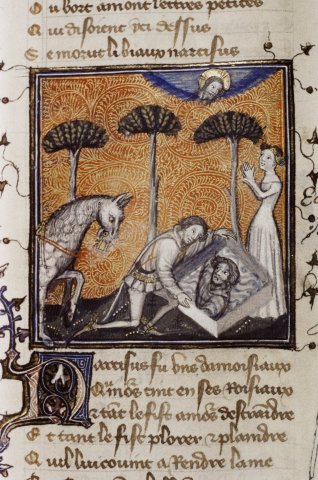 Ou bort amont lettres petites
Qui disoient yci dessus
Se morut li biaux narcisus
Narcisus fu uns damoisiaux
Qu amors tint en ses roisiaux
Et tāt le fist amōs destraīdre
Et tant le fist plorer z plaindre
Quil lui couint a rendre lame